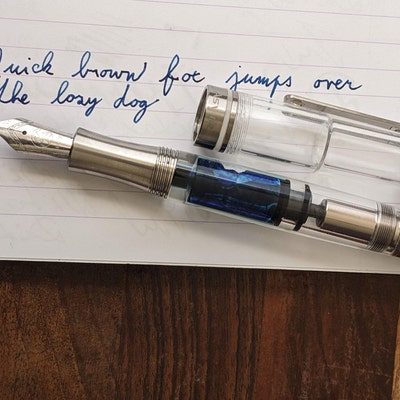 Quick brown fox jumps over
the lazy dog